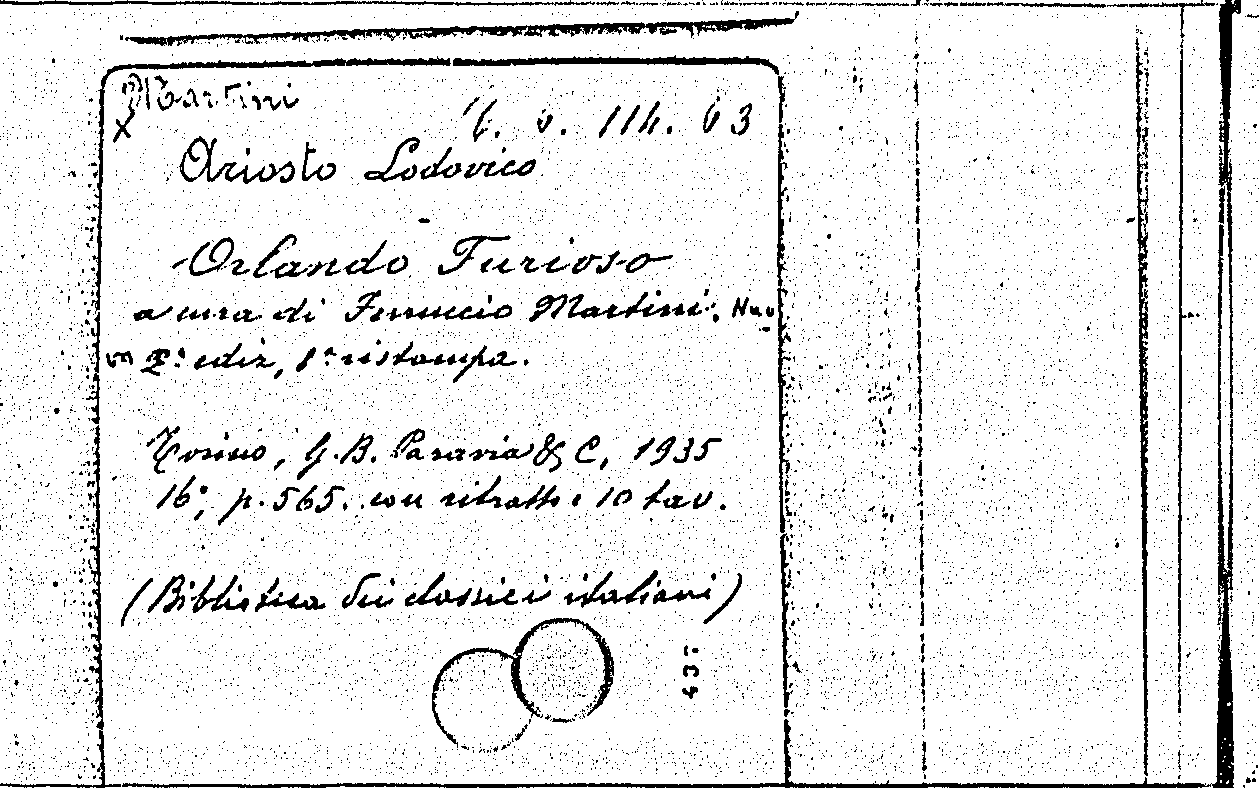 Martini
114. 63
Ariosto Lodovico
Orlando Furioso
a cura di Ferruccio Martini. Nuo
va 2ª ediz, 1ª ristampa.
Torino, G.B. Paravia & C, 1935
16°, p. 565. con ritratto e 10 tav.
(Biblioteca dei classici italiani)